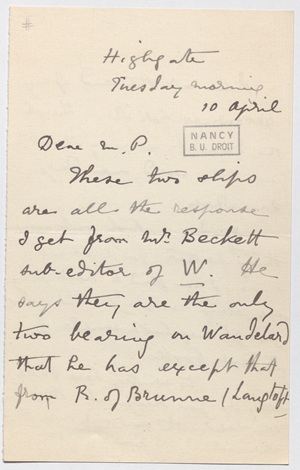 #
Highgate
Tuesday morning
10 April
Dear M. P.
NANCY
B. U. DROIT
These two slips
are all the response
I get from Mr. Beckett
sub-editor of W. He
says they are the only
two bearing on Wandelard
that he has except that
from R. of Brunne (Langtoft